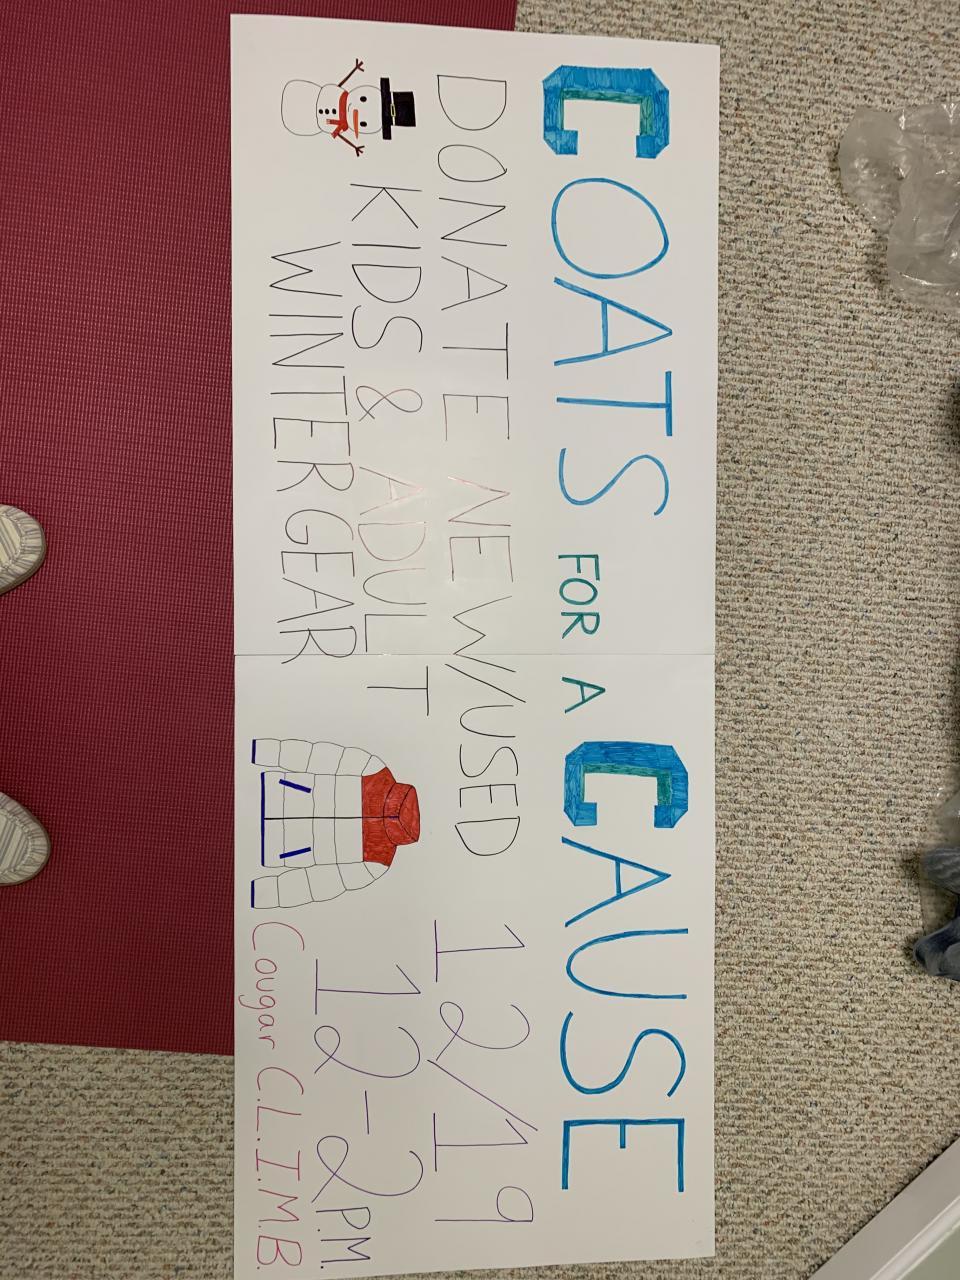 COATS FOR A CAUSE
DONATE NEW/USED
KIDS & ADULT
WINTER GEAR
12/19
12-2 P.M.
Cougar C.L.I.M.B.